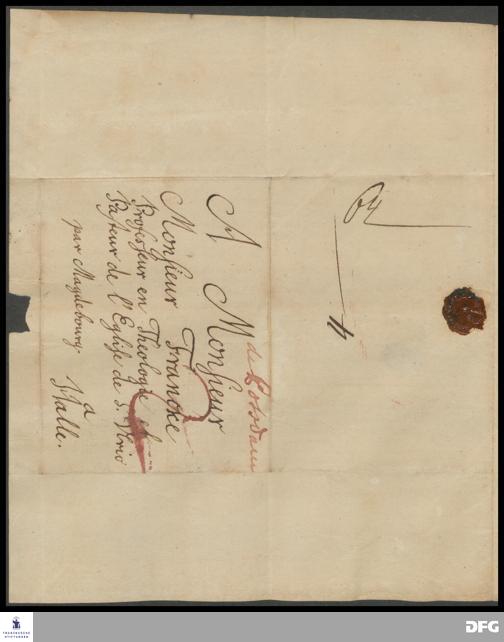 de Potsdam
A Monsieur
Monsieur Francke
Professeur en Theologie et
Pasteur de l'Eglise de S. Ulric
par Magdebourg.
a
Halle.
FRANCKESCHE
STIFTUNGEN
DFG